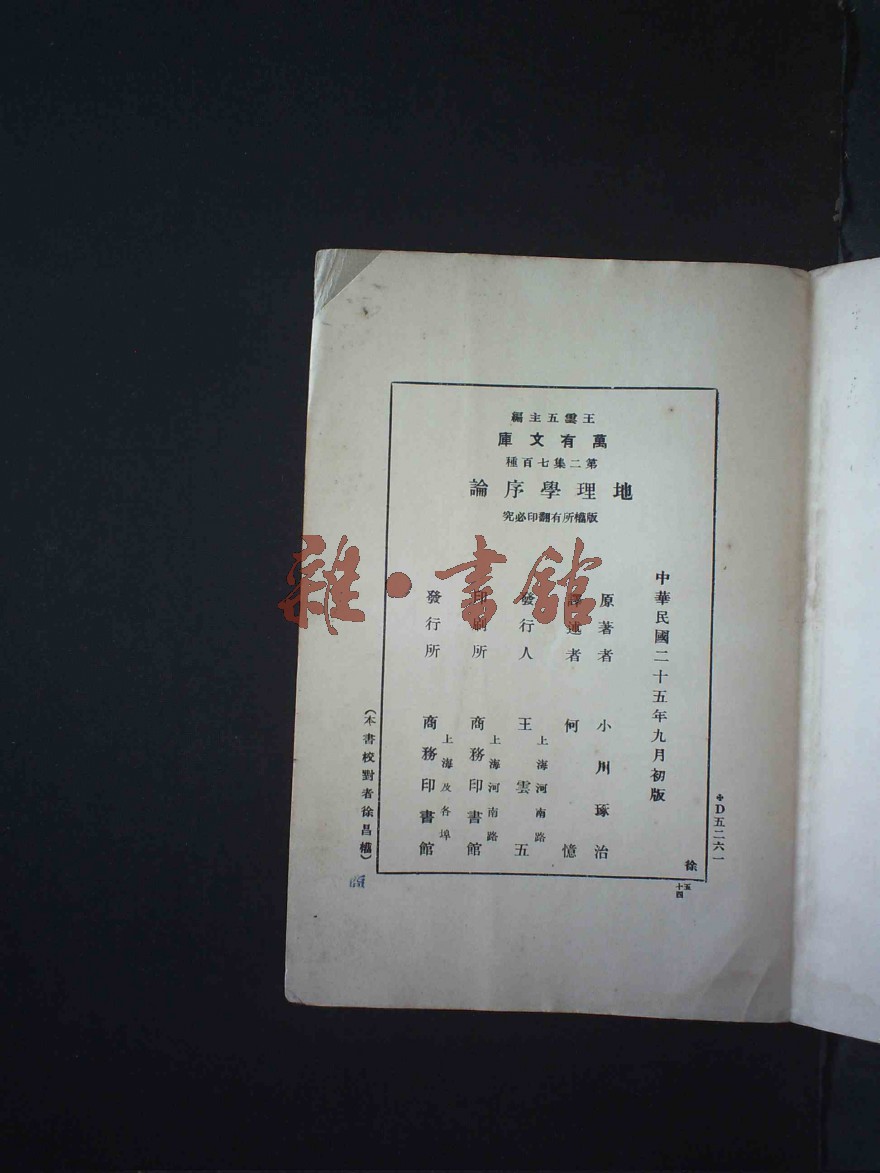 王雲五主編
萬有文庫
第二集七百種
地理學序論
版權所有翻印必究
中華民國二十五年九月初版
原著者 小川琢治
譯述者 何憶
發行人 王雲五
上海河南路
印刷所 商務印書館
上海河南路
發行所 商務印書館
上海及各埠
(本書校對者徐昌權)
D五二六一
徐
雜·書館